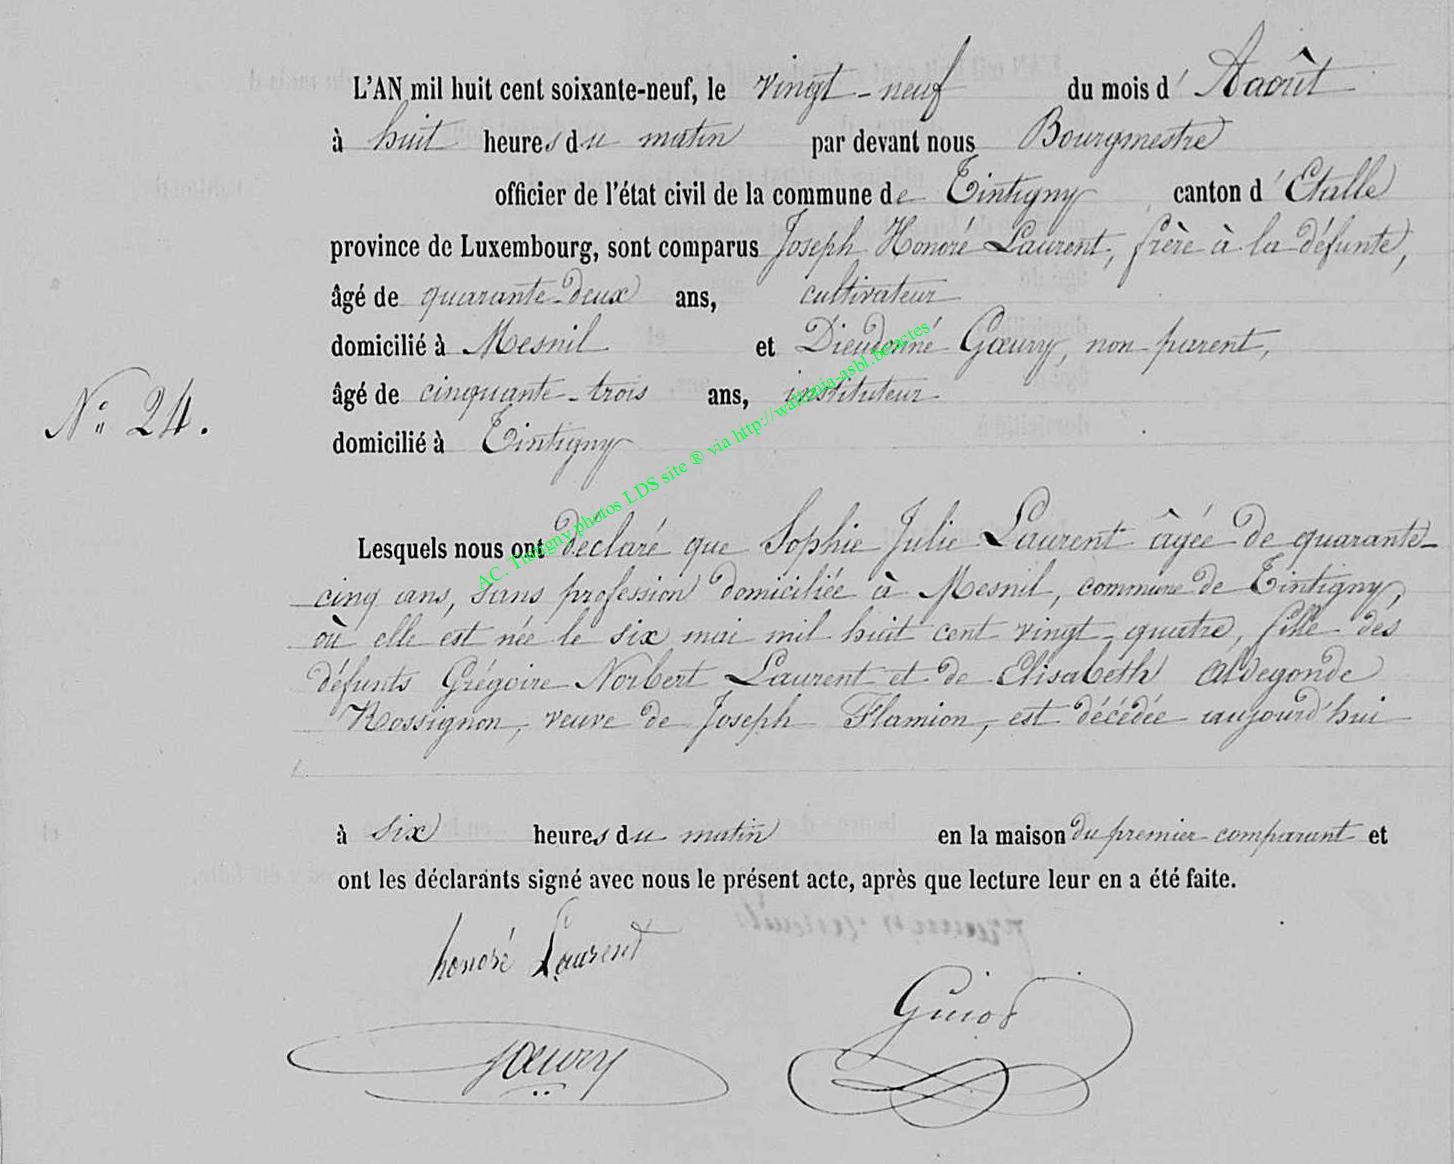 L'AN mil huit cent soixante-neuf, le vingt-neuf du mois d' Aaoût
à huit heures du matin par devant nous Bourgmestre
officier de l'état civil de la commune de Tintigny canton d' Etalle
province de Luxembourg, sont comparus Joseph Honoré Laurent, frère à la défunte,
âgé de quarante-deux ans, cultivateur
domicilié à Mesnil et Dieudonné Gœury, non parent,
âgé de cinquante-trois ans, instituteur
N° 24.
domicilié à Tintigny
AC. Tintigny photos LDS site ® via http://waltania-asbl.be/actes
Lesquels nous ont déclaré que Sophie Julie Laurent âgée de quarante-
cinq ans, sans profession domiciliée à Mesnil, commune de Tintigny,
où elle est née le six mai mil huit cent vingt-quatre, fille des
défunts Grégoire Norbert Laurent et de Elisabeth Aldegonde
Rossignon, veuve de Joseph Flamion, est décédée aujourd'hui
à six heures du matin en la maison du premier comparant et
ont les déclarants signé avec nous le présent acte, après que lecture leur en a été faite.
honoré Laurent
Guiot
Gœury